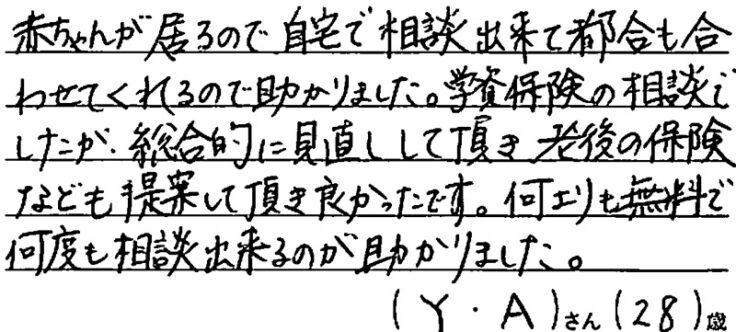 赤ちゃんが居るので自宅で相談出来て都合も合
わせてくれるので助かりました。学資保険の相談で
したが、総合的に見直しして頂き老後の保険
なども提案して頂き良かったです。何よりも無料で
何度も相談出来るのが助かりました。
(Y・A)さん(28)歳